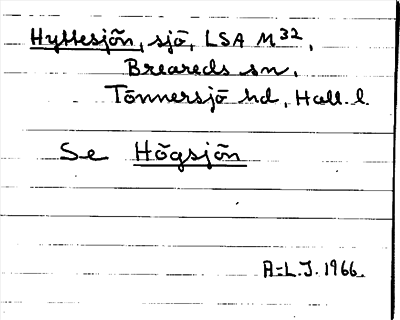 Hyttesjön, sjö, LSA M32,
Breareds sn,
Tönnersjö hd, Hall. l.
Se Högsjön
A-L.J. 1966.